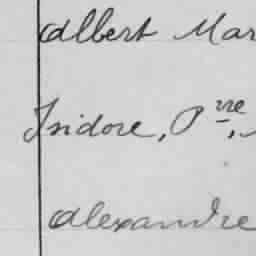 Albert Mar
Isidore, P^re,
Alexandre